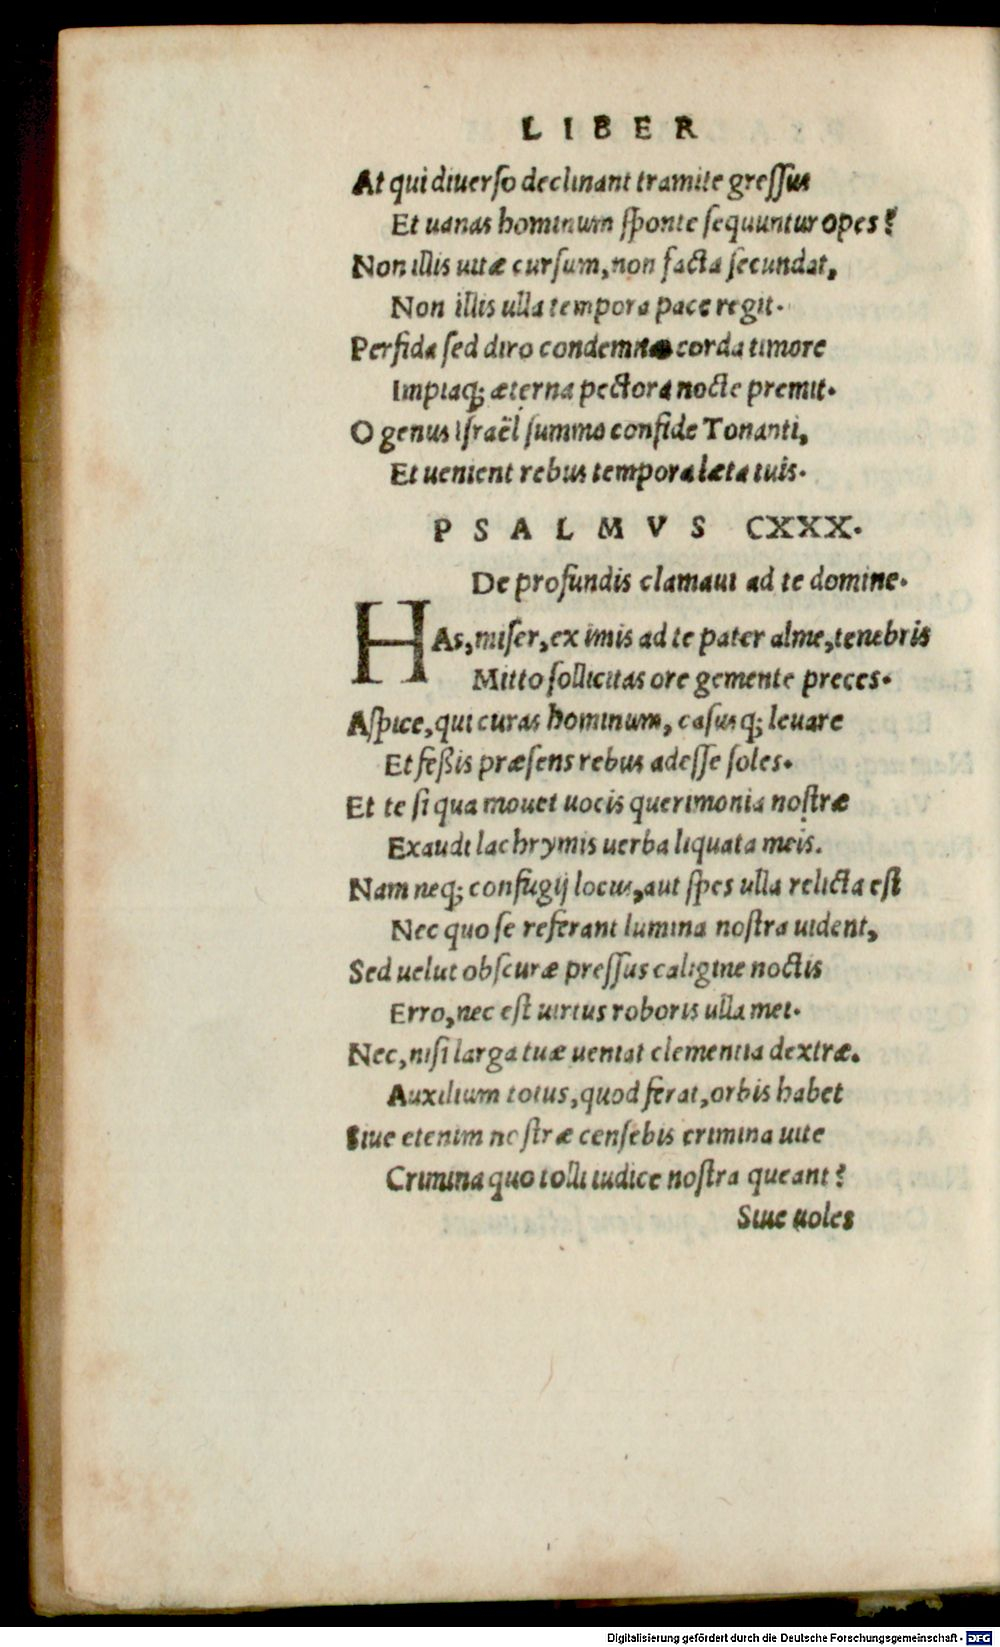 LIBER
At qui diuerso declinant tramite gressus
Et uanas hominum sponte sequuntur opes?
Non illis uitæ cursum, non facta secundat,
Non illis ulla tempora pace regit.
Perfida sed diro condemnat corda timore
Impiaq; æterna pectora nocte premit.
O genus Israël summo confide Tonanti,
Et uenient rebus tempora læta tuis.
PSALMVS CXXX.
De profundis clamaui ad te domine.
HAs, miser, ex imis ad te pater alme, tenebris
Mitto sollicitas ore gemente preces.
Aspice, qui curas hominum, casusq; leuare
Et feßis præsens rebus adesse soles.
Et te si qua mouet uocis querimonia nostræ
Exaudi lachrymis uerba liquata meis.
Nam neq; confugij locus, aut spes ulla relicta est
Nec quo se referant lumina nostra uident,
Sed uelut obscuræ pressus caligine noctis
Erro, nec est uirtus roboris ulla mei.
Nec, nisi larga tuæ ueniat clementia dextræ.
Auxilium totus, quod ferat, orbis habet
Siue etenim nostræ censebis crimina uite
Crimina quo tolli iudice nostra queant?
Siue uoles
Digitalisierung gefördert durch die Deutsche Forschungsgemeinschaft - DFG